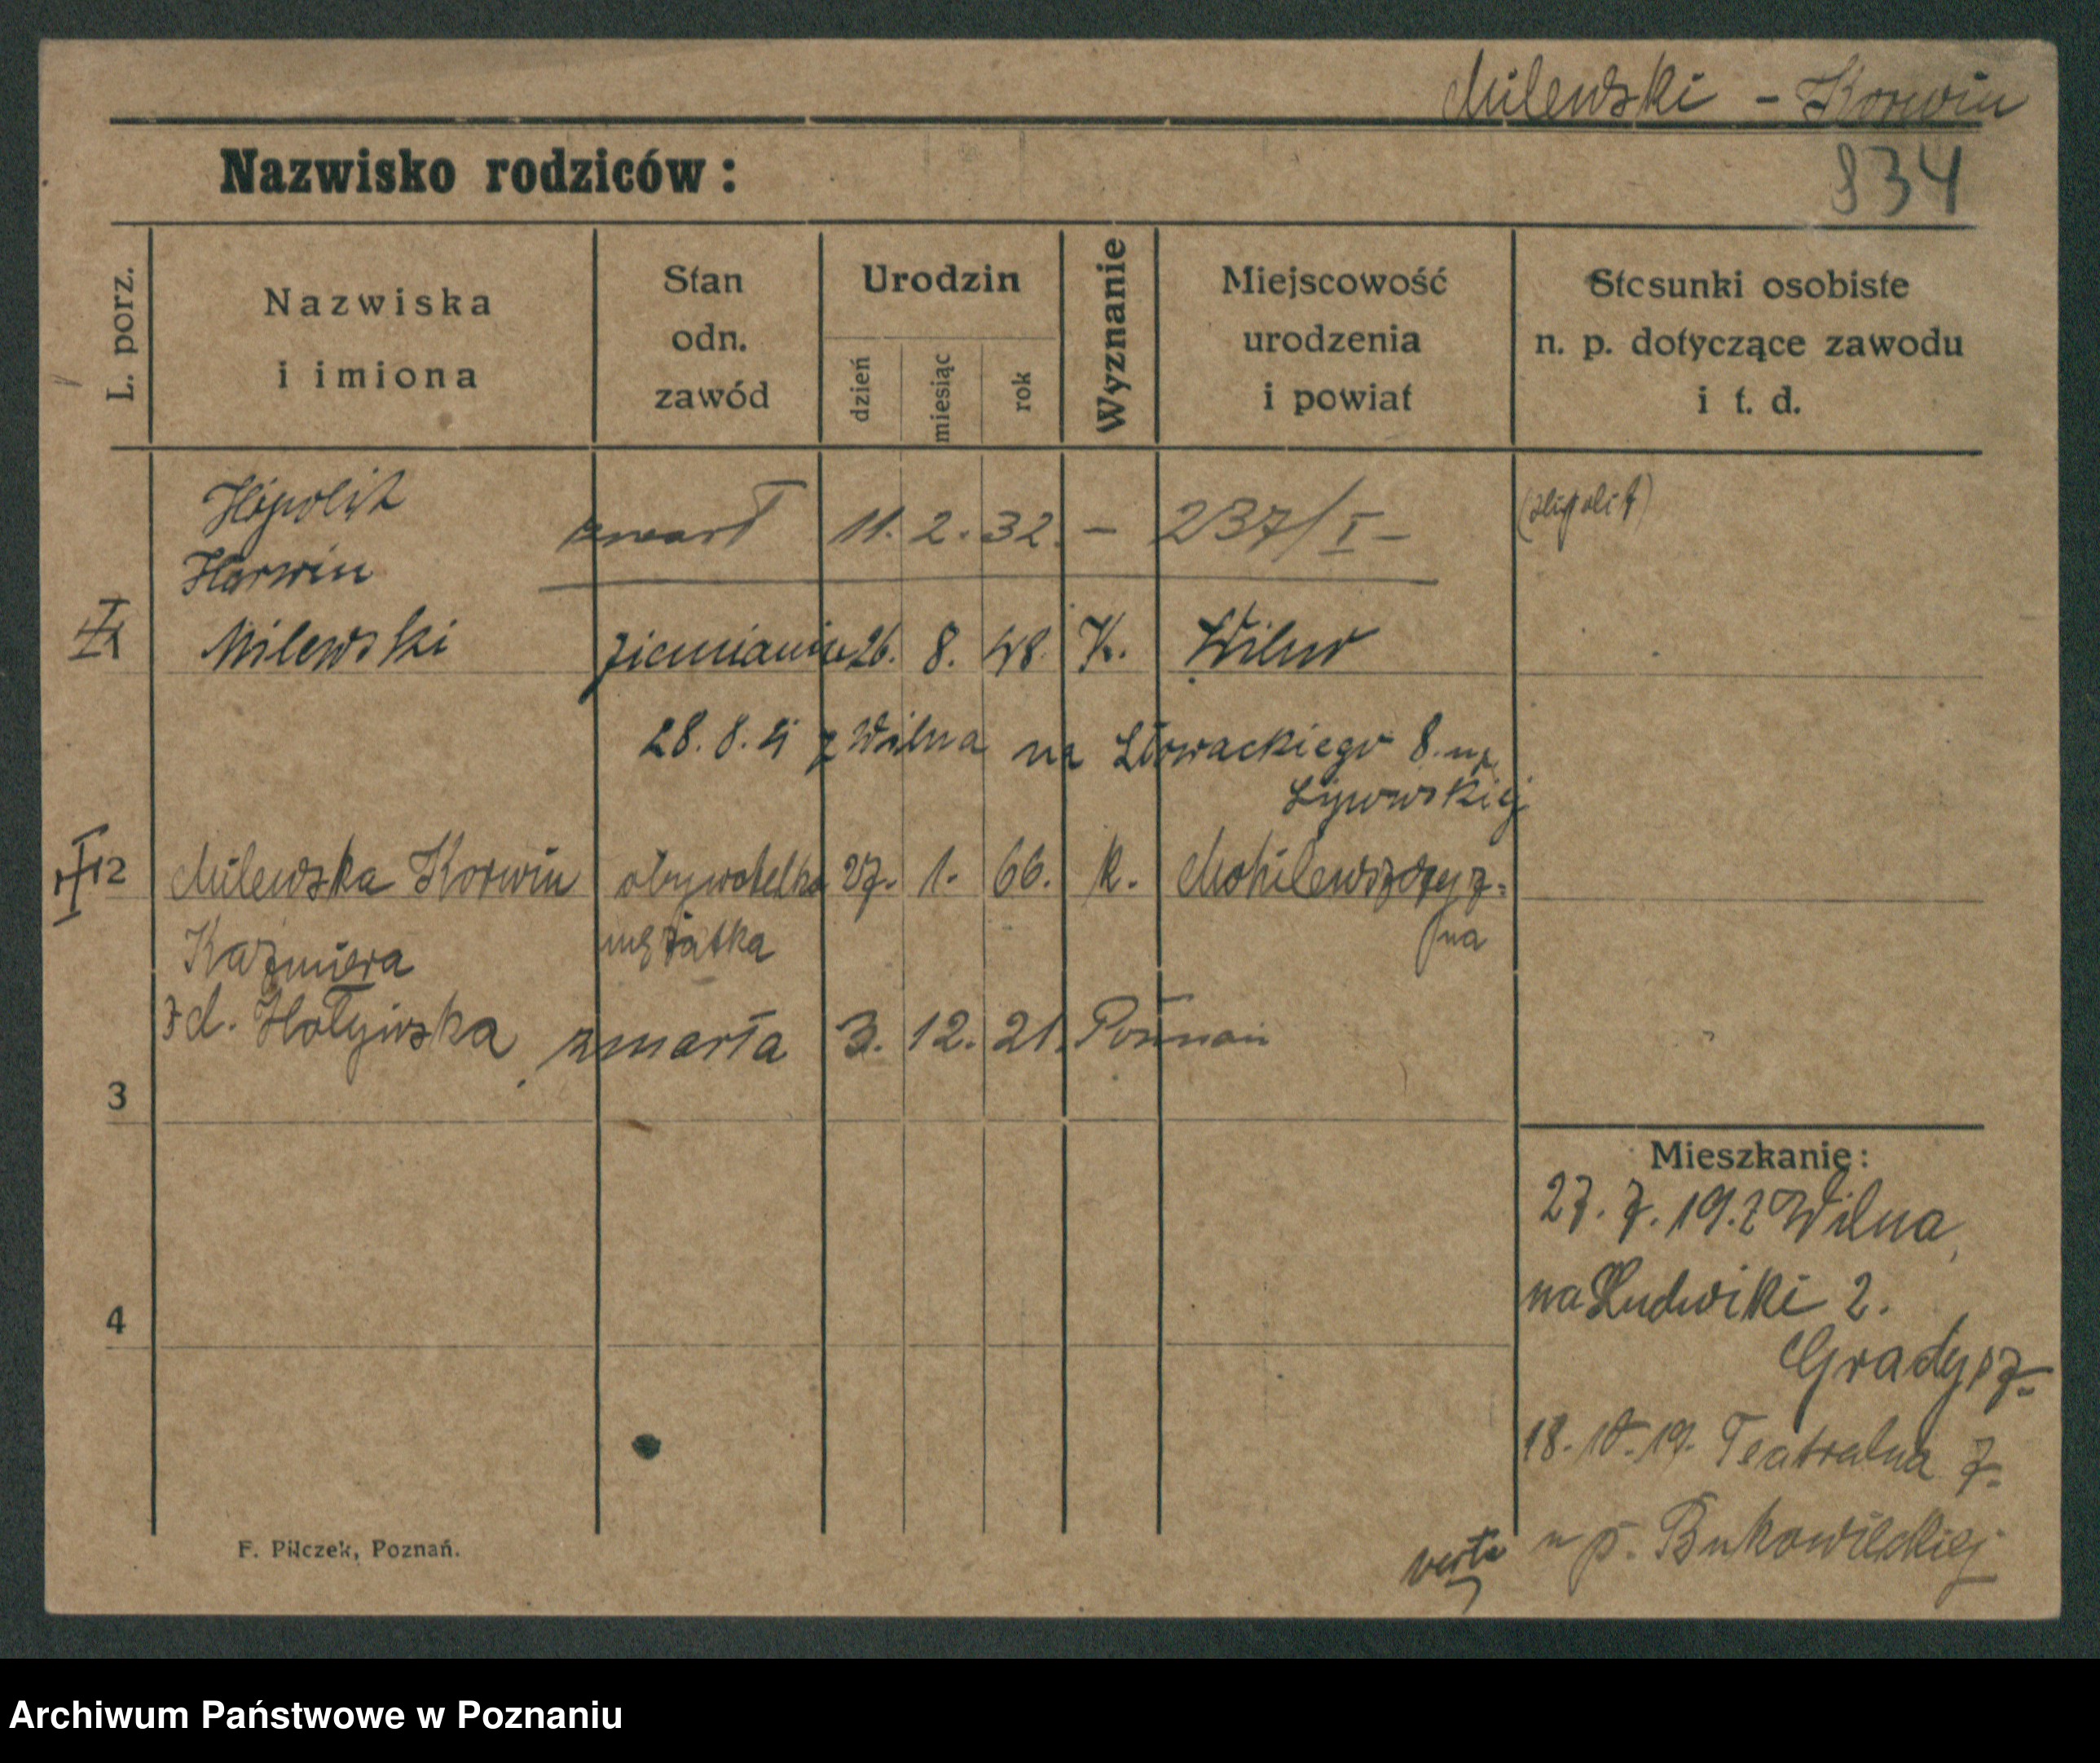 Milewski - Korwin
Nazwisko rodziców:
834
L. porz.
Nazwiska
i imiona
Stan
odn.
zawód
Urodzin
dzień
miesiąc
rok
Wyznanie
Miejscowość
urodzenia
i powiat
Stosunki osobiste
n. p. dotyczące zawodu
i t. d.
Hipolit
Korwin
Milewski
zmarł 11. 2. 32. - 237/I -
(Hipolit)
ziemianin 26. 8. 48. K. Wilno
28. 8. z Wilna na Słowackiego 8.
2 Milewska Korwin obywatelka 27. 1. 66. k. Mohilewszczyz-
na
mężatka
Kaźmiera
zd. Hołyńska zmarła 3. 12. 21. Poznań
3
Mieszkanie:
27. 7. 19. z Wilna
na Ludwiki 2.
4
18. 10. 19. Teatralna 7.
verte
F. Pilczek, Poznań.
Archiwum Państwowe w Poznaniu